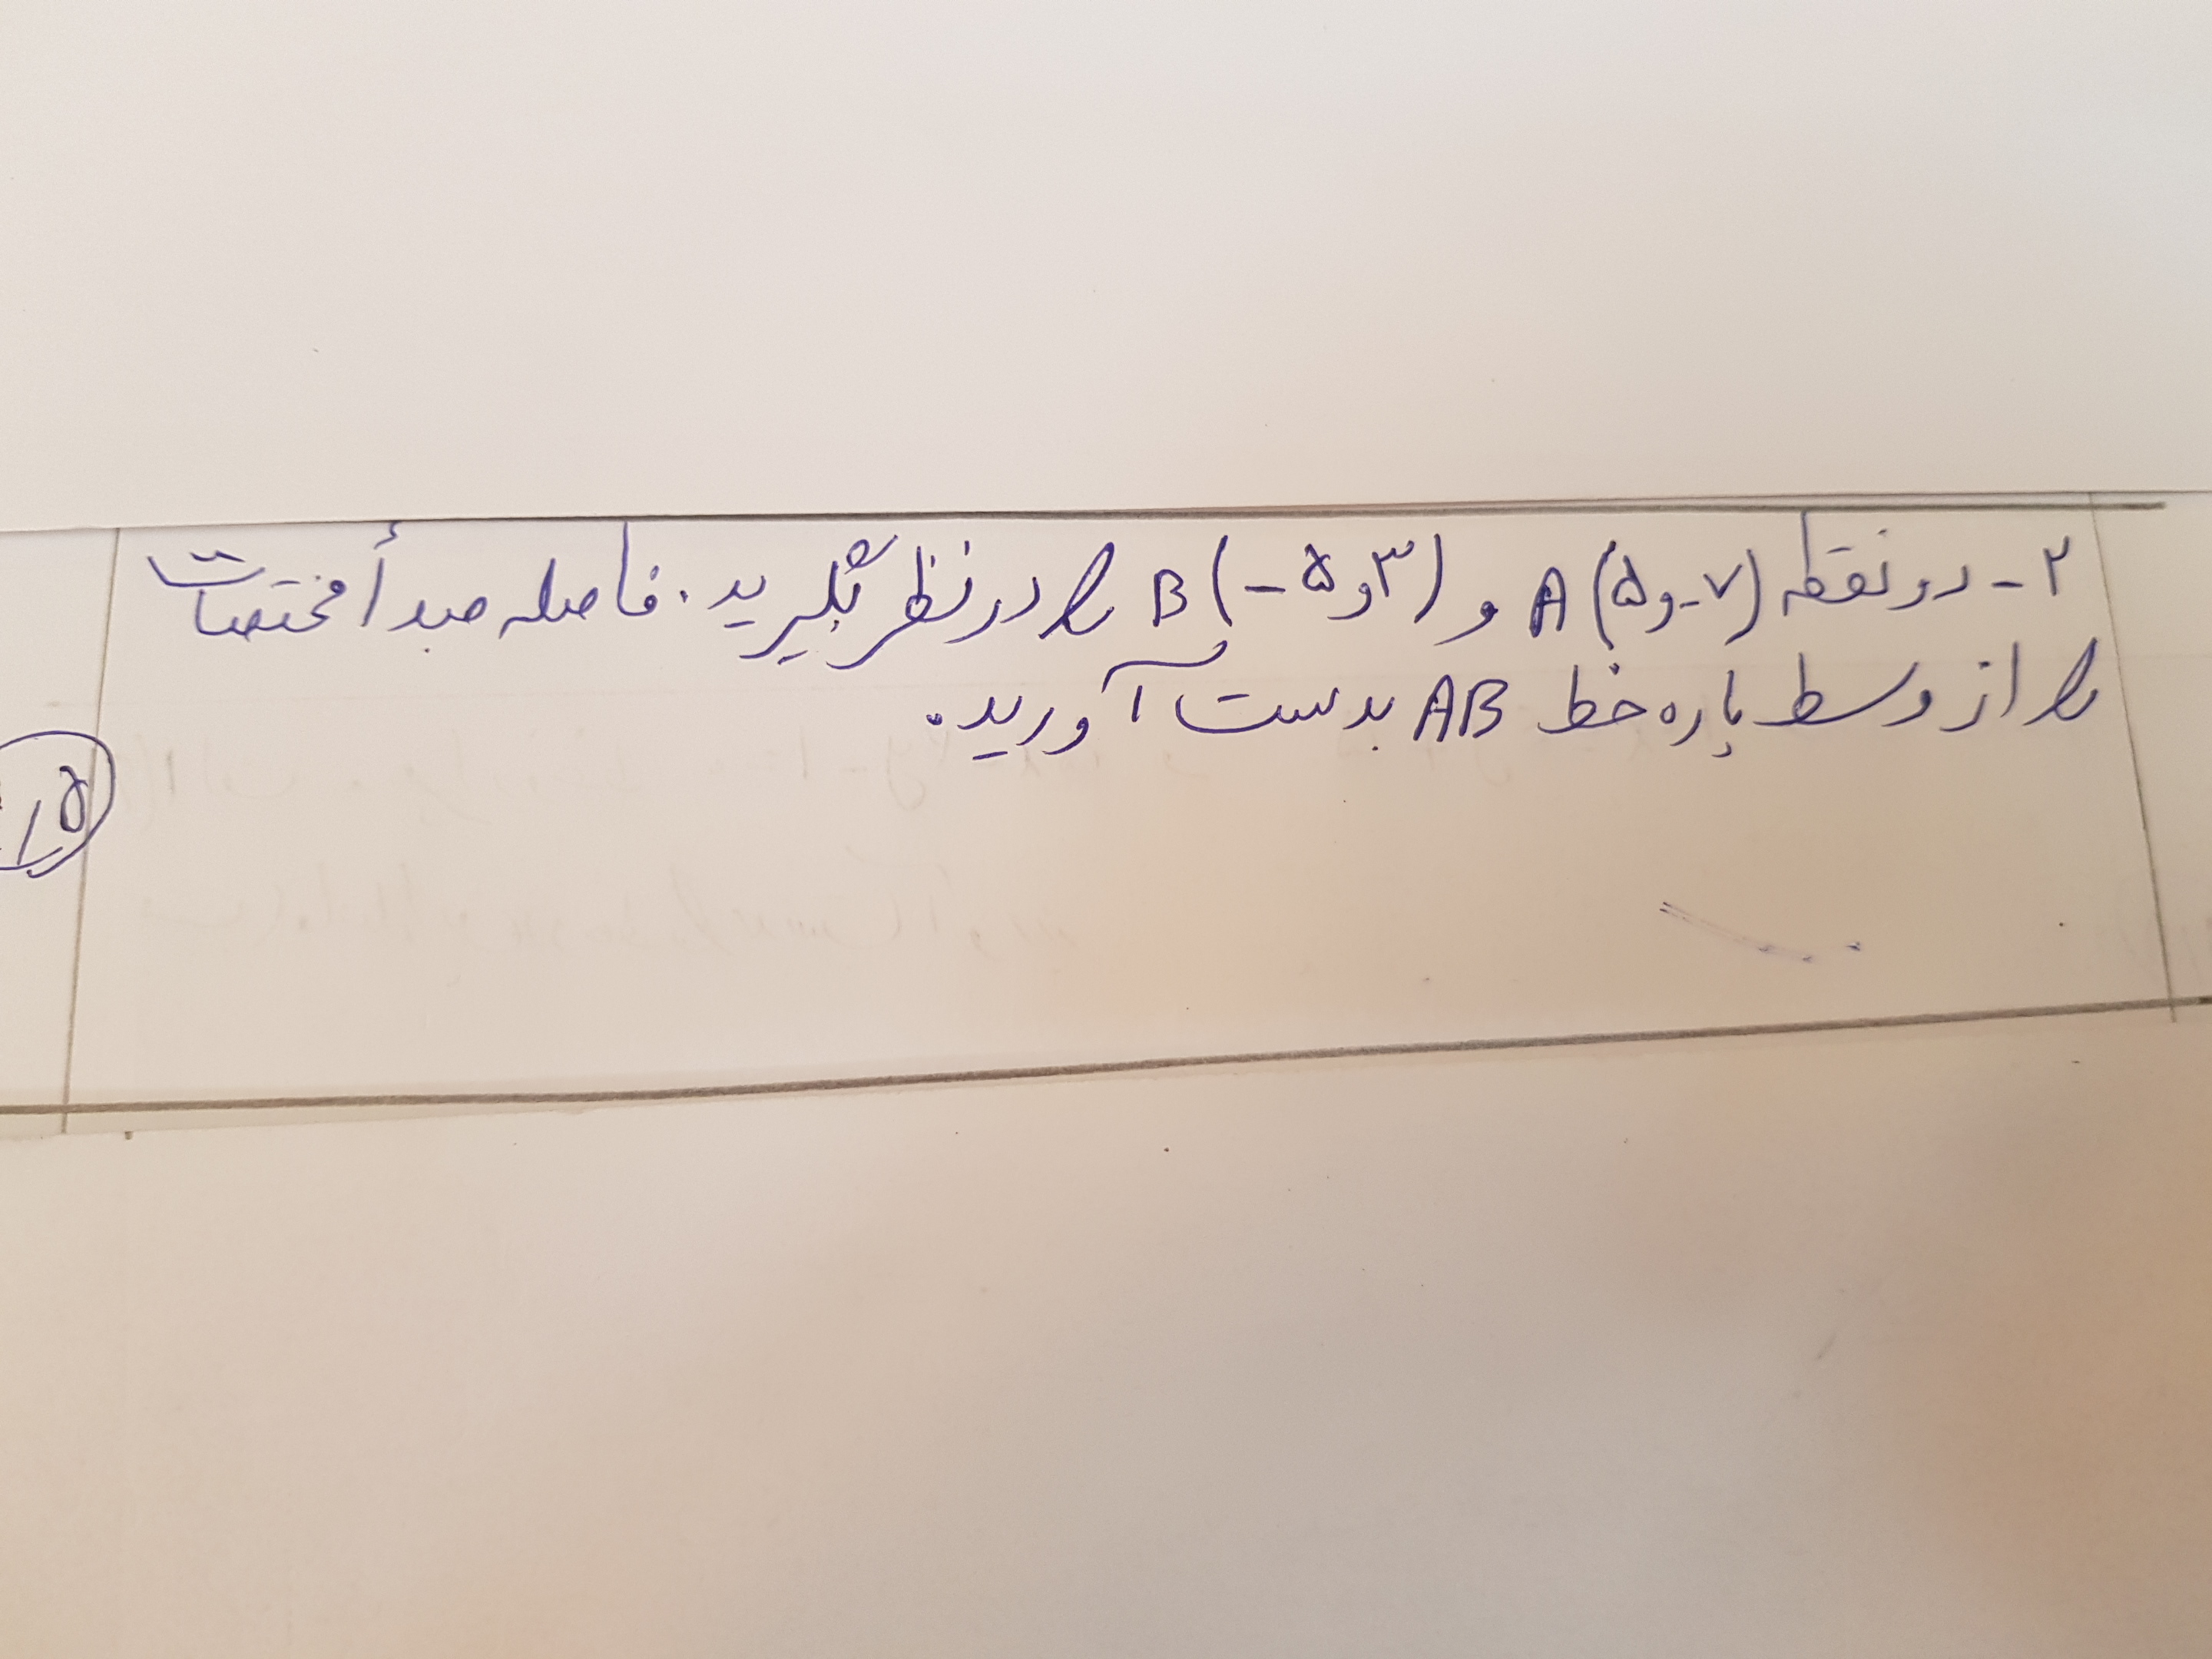 ۲- دو نقطه A(۵ و -۷) و B(-۵ و ۳) را در نظر بگیرید. فاصله مبدأ مختصات
را از وسط پاره خط AB بدست آورید.
۵,